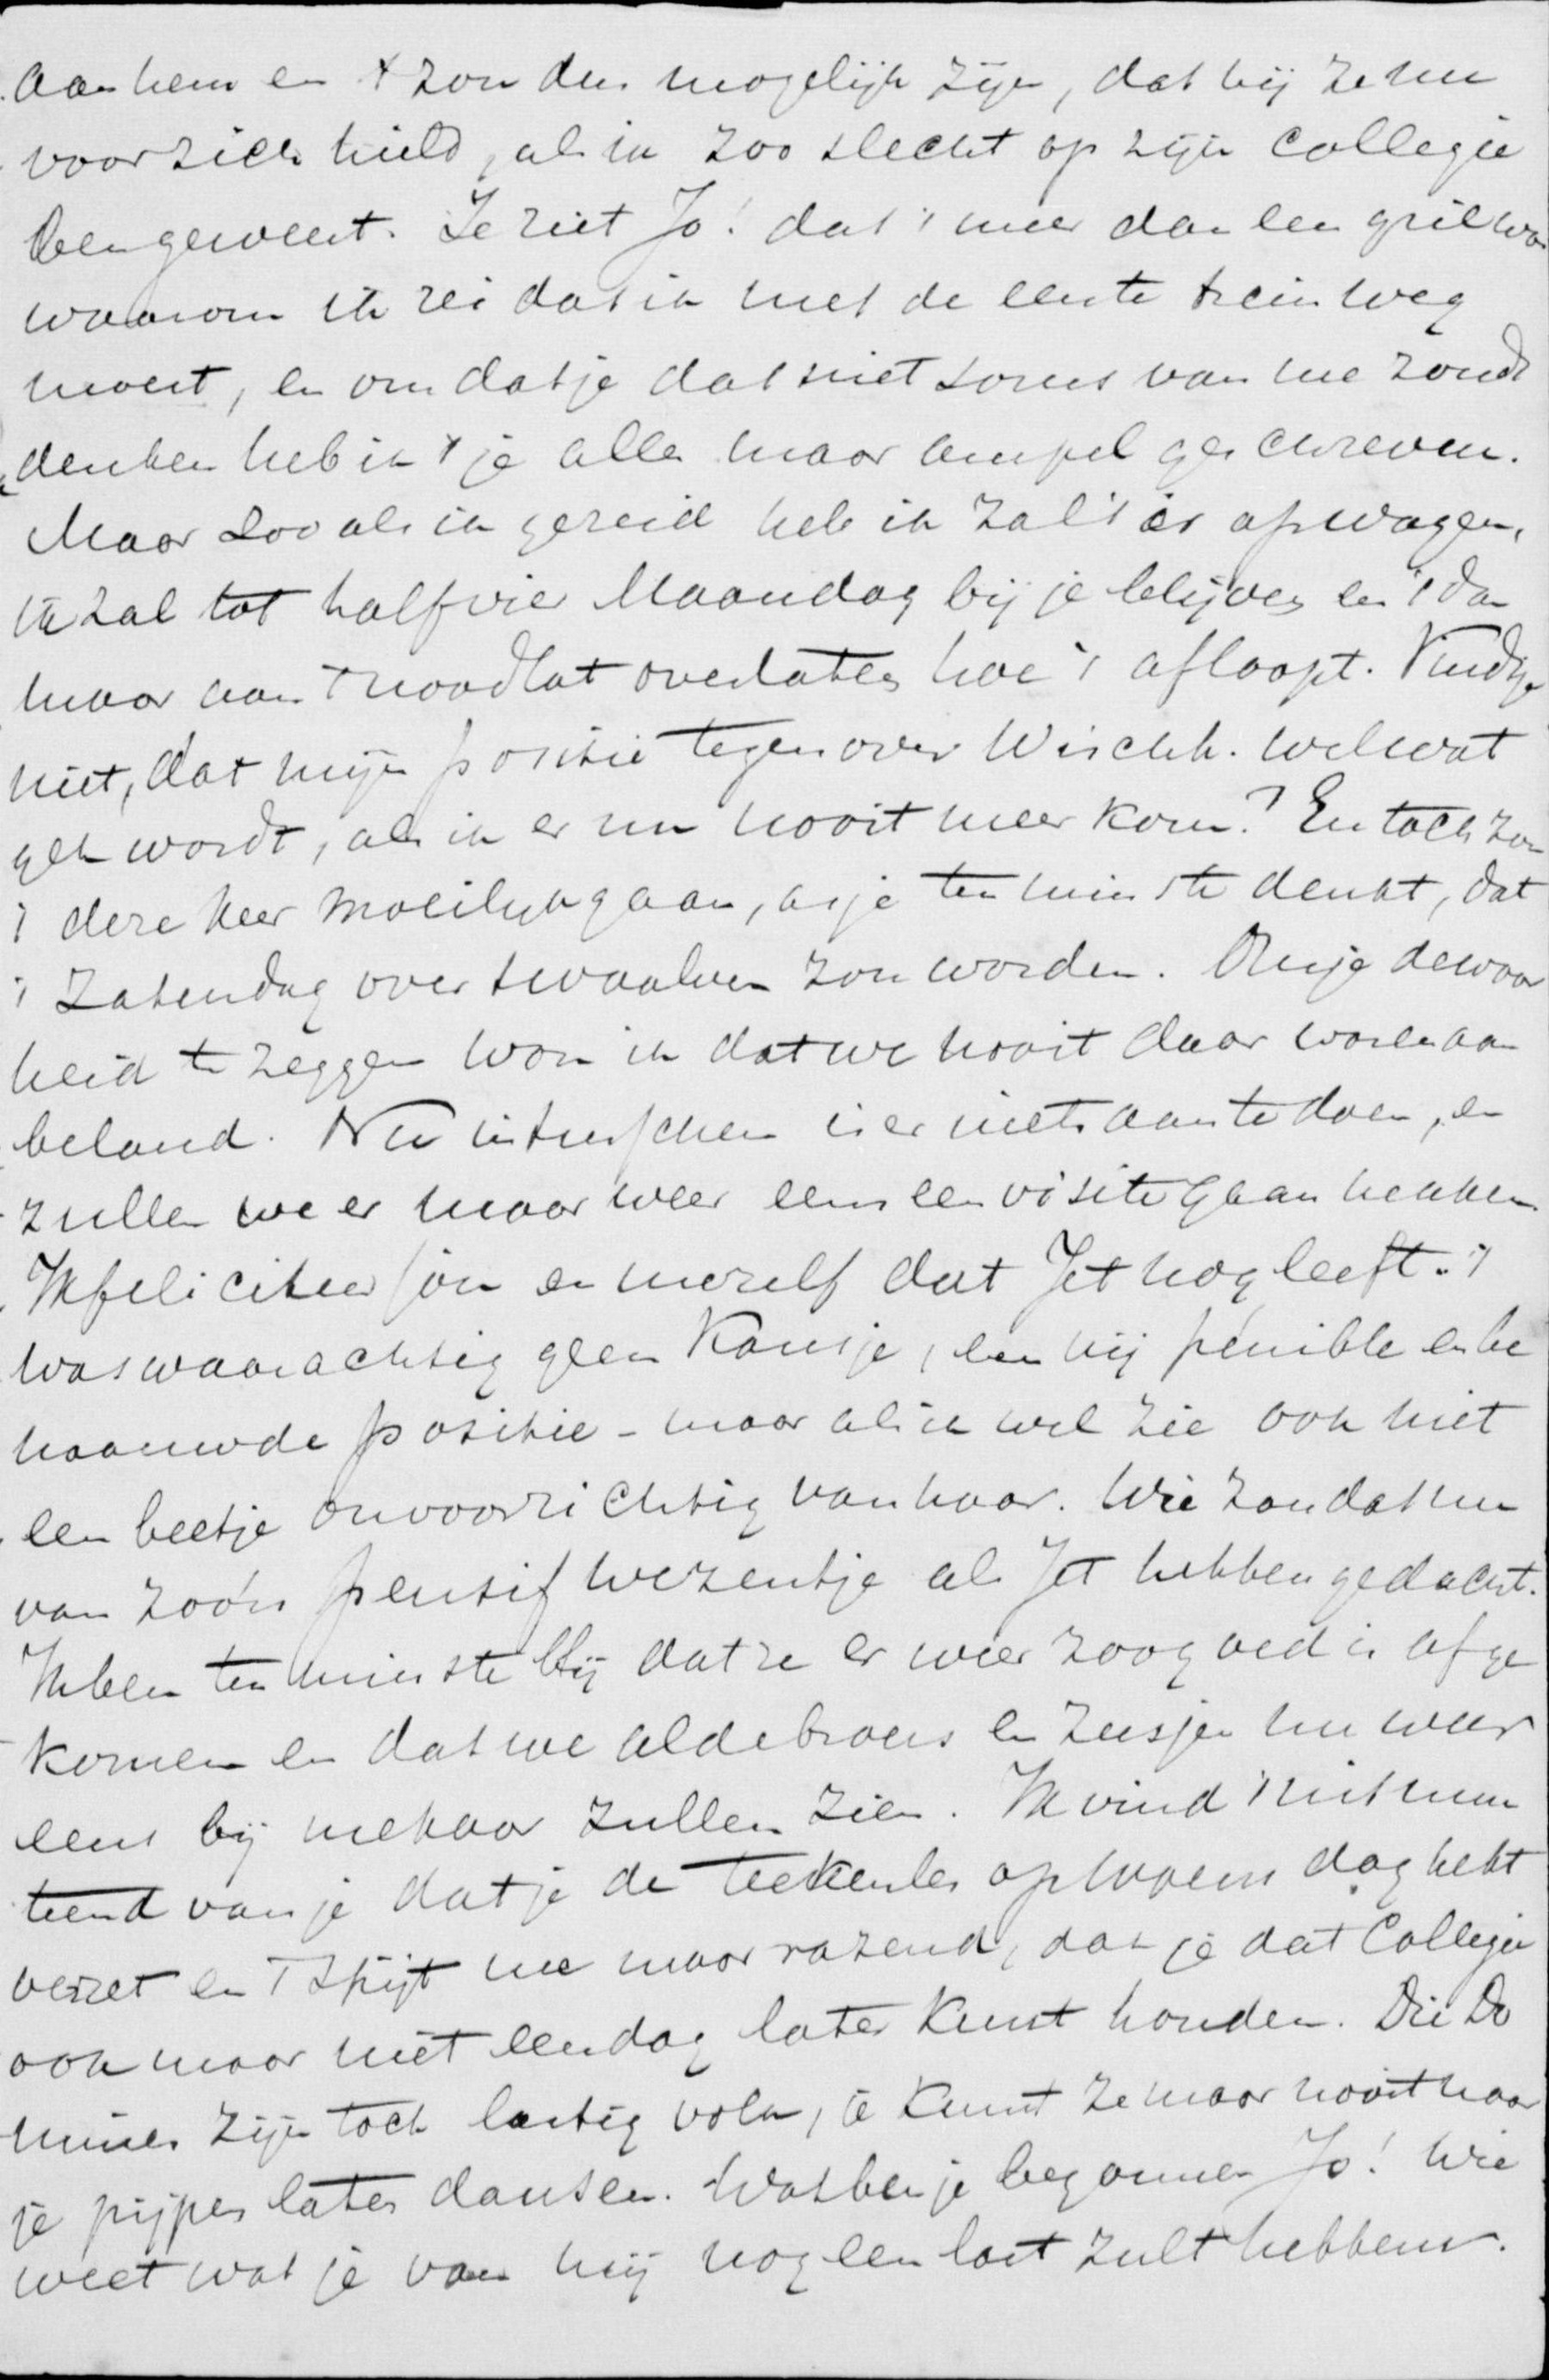 aan hem en 't zou dus mogelijk zijn, dat hij ze nu
voor zich hield, als ik zoo slecht op zijn collegie
ben geweest. Je ziet Jo! dat 't meer dan een gril was
waarom ik zei dat ik met de eerste trein weg
moest, en omdat je dat niet soms van me zoudt
denken heb ik 't je alles maar ampel geschreven.
Maar zooals ik gezeid heb ik zal 't er op wagen,
ik zal tot half vier Maandag bij je blijven en 't dan
maar aan 't noodlot overlaten hoe 't afloopt. Vind je
niet, dat mijn positie tegenover Wischh. wel wat
gek wordt, als ik er nu nooit meer kom? En toch zou
't deze keer moeilijk gaan, as je ten minste denkt, dat
't Zaterdag over twaalven zou worden. Om je de waar
heid te zeggen wou ik dat we nooit daar waren aan
beland. Nu intusschen is er niets aan te doen, en
zullen we er maar weer eens een visite gaan maken
Ik feliciteer jou en mezelf dat Jet nog leeft. 't
was waarachtig geen kansje, een vrij penible en be
naauwde positie - maar als ik wel zie ook niet
een beetje onvoorzichtig van haar. Wie zou dat nu
van zoo'n pensif wezentje als Jet hebben gedacht.
Ik ben ten minste blij dat ze er weer zoo goed is afge
komen en dat we al de broers en zusjes nu weer
eens bij mekaar zullen zien. Ik vind 't niks min
tend van je dat je de teekenles op woensdag hebt
verzet en 't spijt me maar razend, dat je dat Collegie
ook maar niet een dag later kunt houden. Die Do
minés zijn toch lastig volk, je kunt ze maar nooit naar
je pijpen laten dansen. Wat ben je begonnen Jo! Wie
weet wat je van mij nog een last zult hebben.